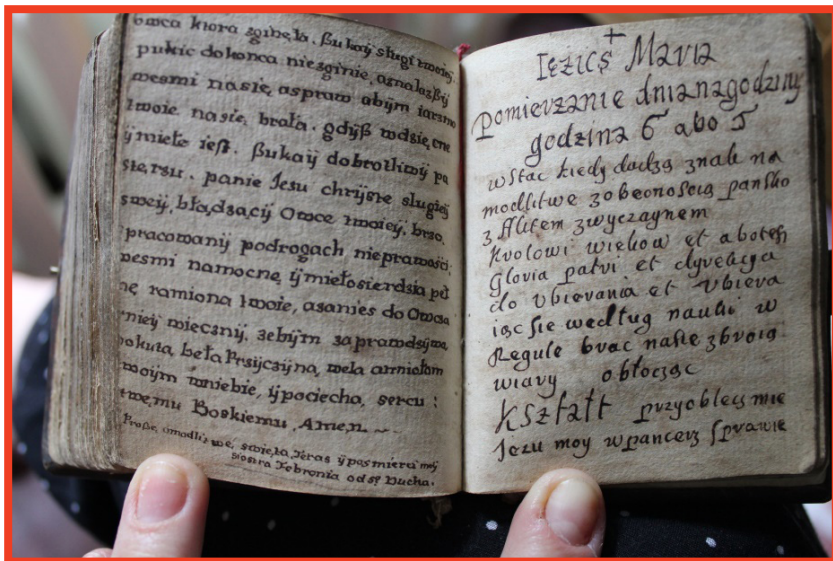 owca ktora zginęła. ßukaÿ sługi twoieÿ
pukic dokonca niezginie, aznalazßÿ
wesmi nasię, aspraw abÿm iarzmo
twoie nasię, brała. gdÿß wdzięcne
ÿ miełe iest. ßukaÿ dobrotliwÿ pa
panie Jesu chrÿste slugieÿ
sweÿ, błądzącÿ Owce twoieÿ,
pracowanÿ podrogach nieprawości;
wesmi namocnę ÿ miełosierdzia
ramiona twoie, azanies do Owcza
wiecznÿ, zebÿm zaprawdsÿwą
pokutą beła Prsÿczÿną, wela anniołom
twoÿm wniebie, ÿ pociechą, sercu :
twemu Boskiemu, Amen ~ ~
Proßę omodlitwę, swiętą Teras ÿ posmierci meÿ
siostra Febronia od s° Ducha.
Iezus + Maria
Pomierzanie dnia nagodziny
godzina 6 abo 5
wstac kiedy dadzą znak na
modlitwę z obecnoscią pansko
z Afftem zwyczaynem
Krolowi wiekow et aboten
Gloria patri et
do Vbierania et Vbiera
iąc sie według nauki w
Regule brac nasie zbroią
wiary obłocząc
Kształt przyoblecz mie
Jezu moy wpancerz sprawie